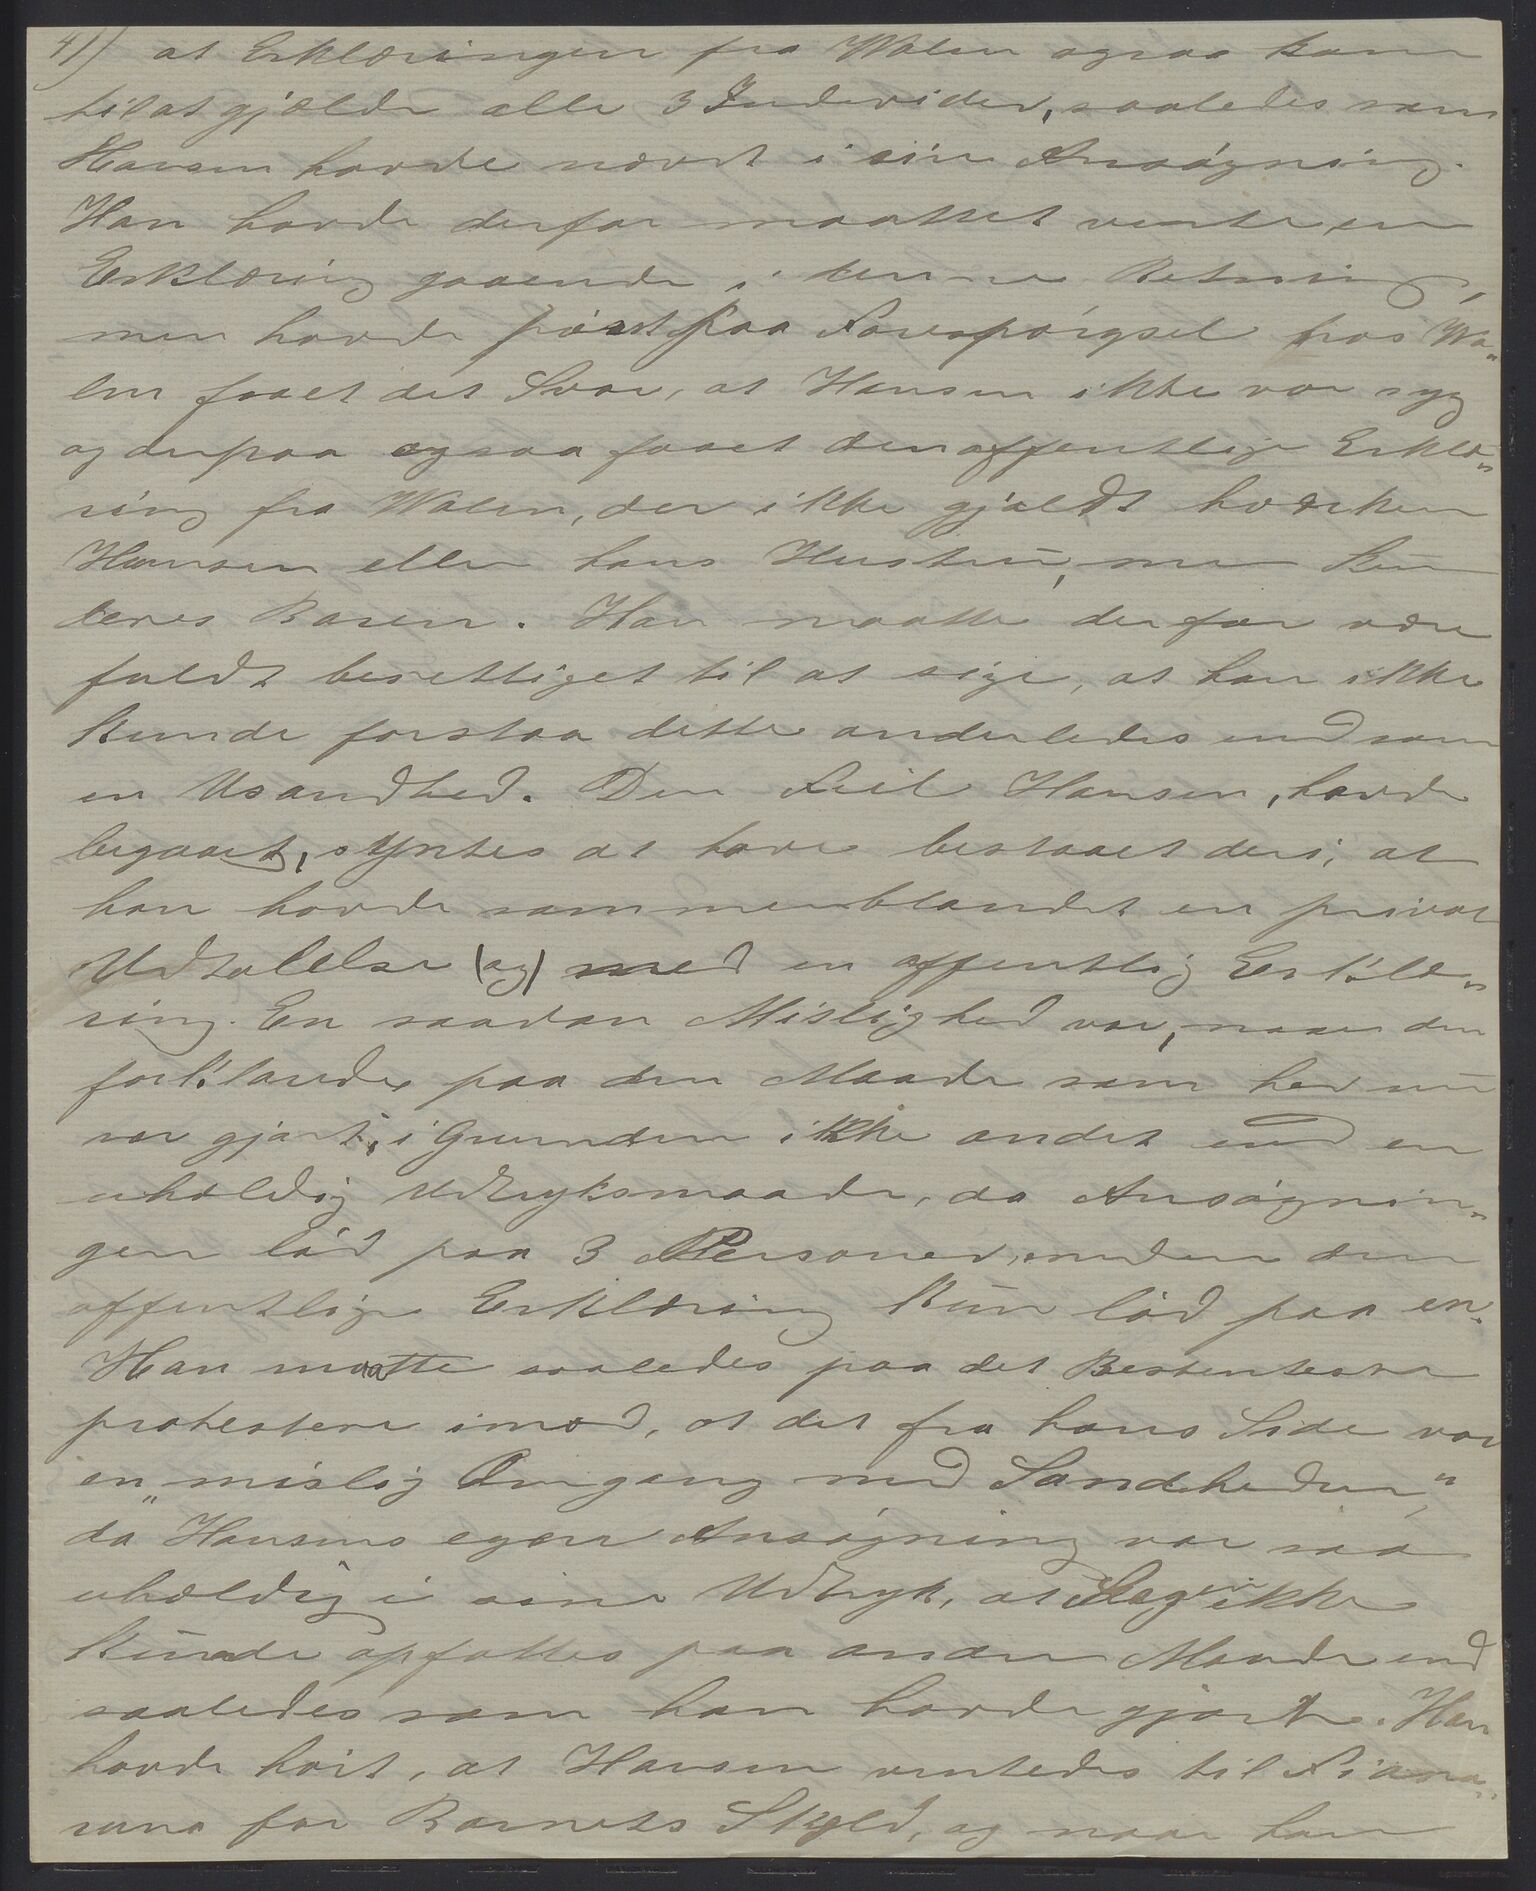 41) at Erklæringen fra Walen ogsaa kom
til at gjælde alle 3 Individer, saaledes som
Hansen havde nævnt i sin Ansøgning.
Han havde derfor maattet vente en
Erklæring gaaende i denne Retning,
men havde først paa Forespørgsel hos Wa„
len faaet det Svar, at Hansen ikke var syg
og derpaa ogsaa faaet den offentlige Erklæ„
ring fra Walen, der ikke gjaldt hverken
Hansen eller hans Hustru, men kun
deres Barn. Han maatte derfor være
fuldt berettiget til at sige, at han ikke
kunde forstaa dette anderledes end som
en Usandhed. Den Feil Hansen, havde
begaaet, syntes at have bestaaet deri, at
han havde sammenblandet en privat
Udtalelse (og) med en offentlig Erklæ„
ring. En saadan Mislighed var, naar den
forklaredes paa den Maade som her nu
var gjort, i Grunden ikke andet end en
uheldig Udtryksmaade, da Ansøgnin„
gen lød paa 3 Personer, medens den
offentlige Erklæring kun lød paa en.
Han maatte saaledes paa det Bestemteste
protestere imod, at det fra hans Side var
en „mislig Omgang med Sandheden",
da Hansens egen Ansøgning var saa
uheldig i sine Udtryk, at Sagen ikke
kunde opfattes paa anden Maade end
saaledes som han havde gjort. Han
havde hørt, at Hansen ventedes til Fiana„
rana for Barnets Skyld, og naar han